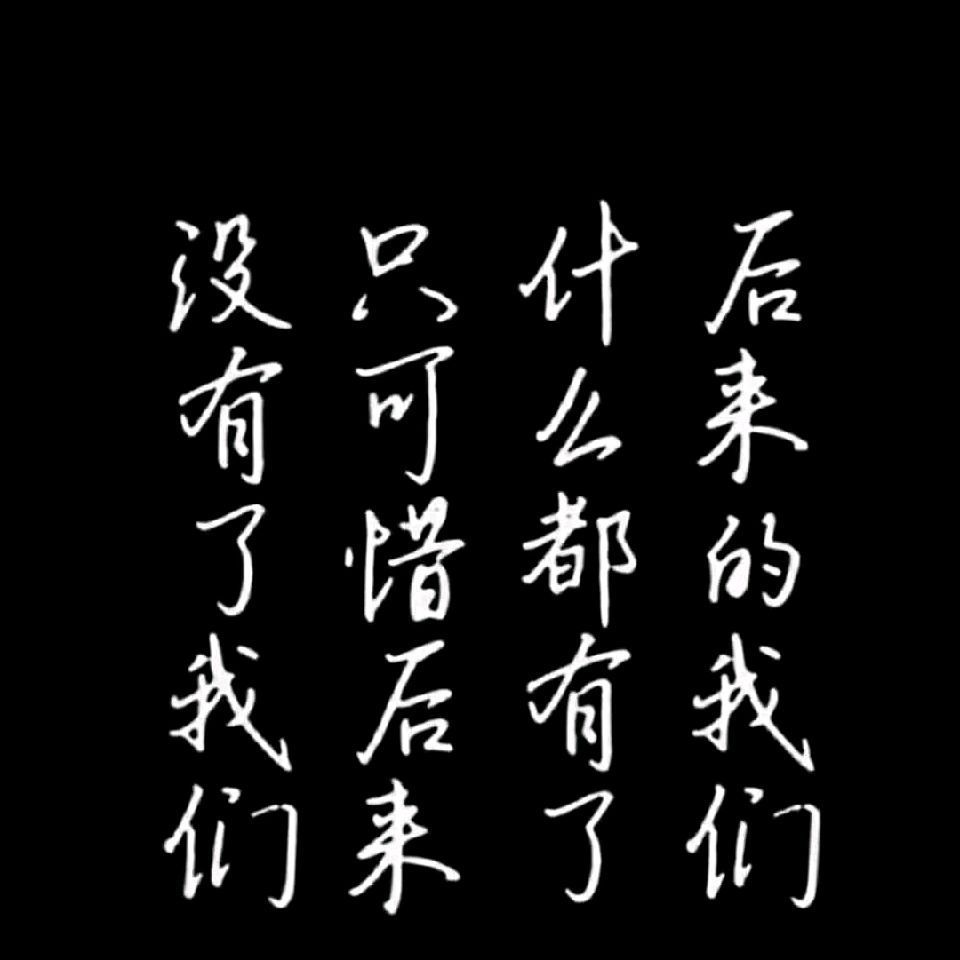 后来的我们
什么都有了
只可惜后来
没有了我们